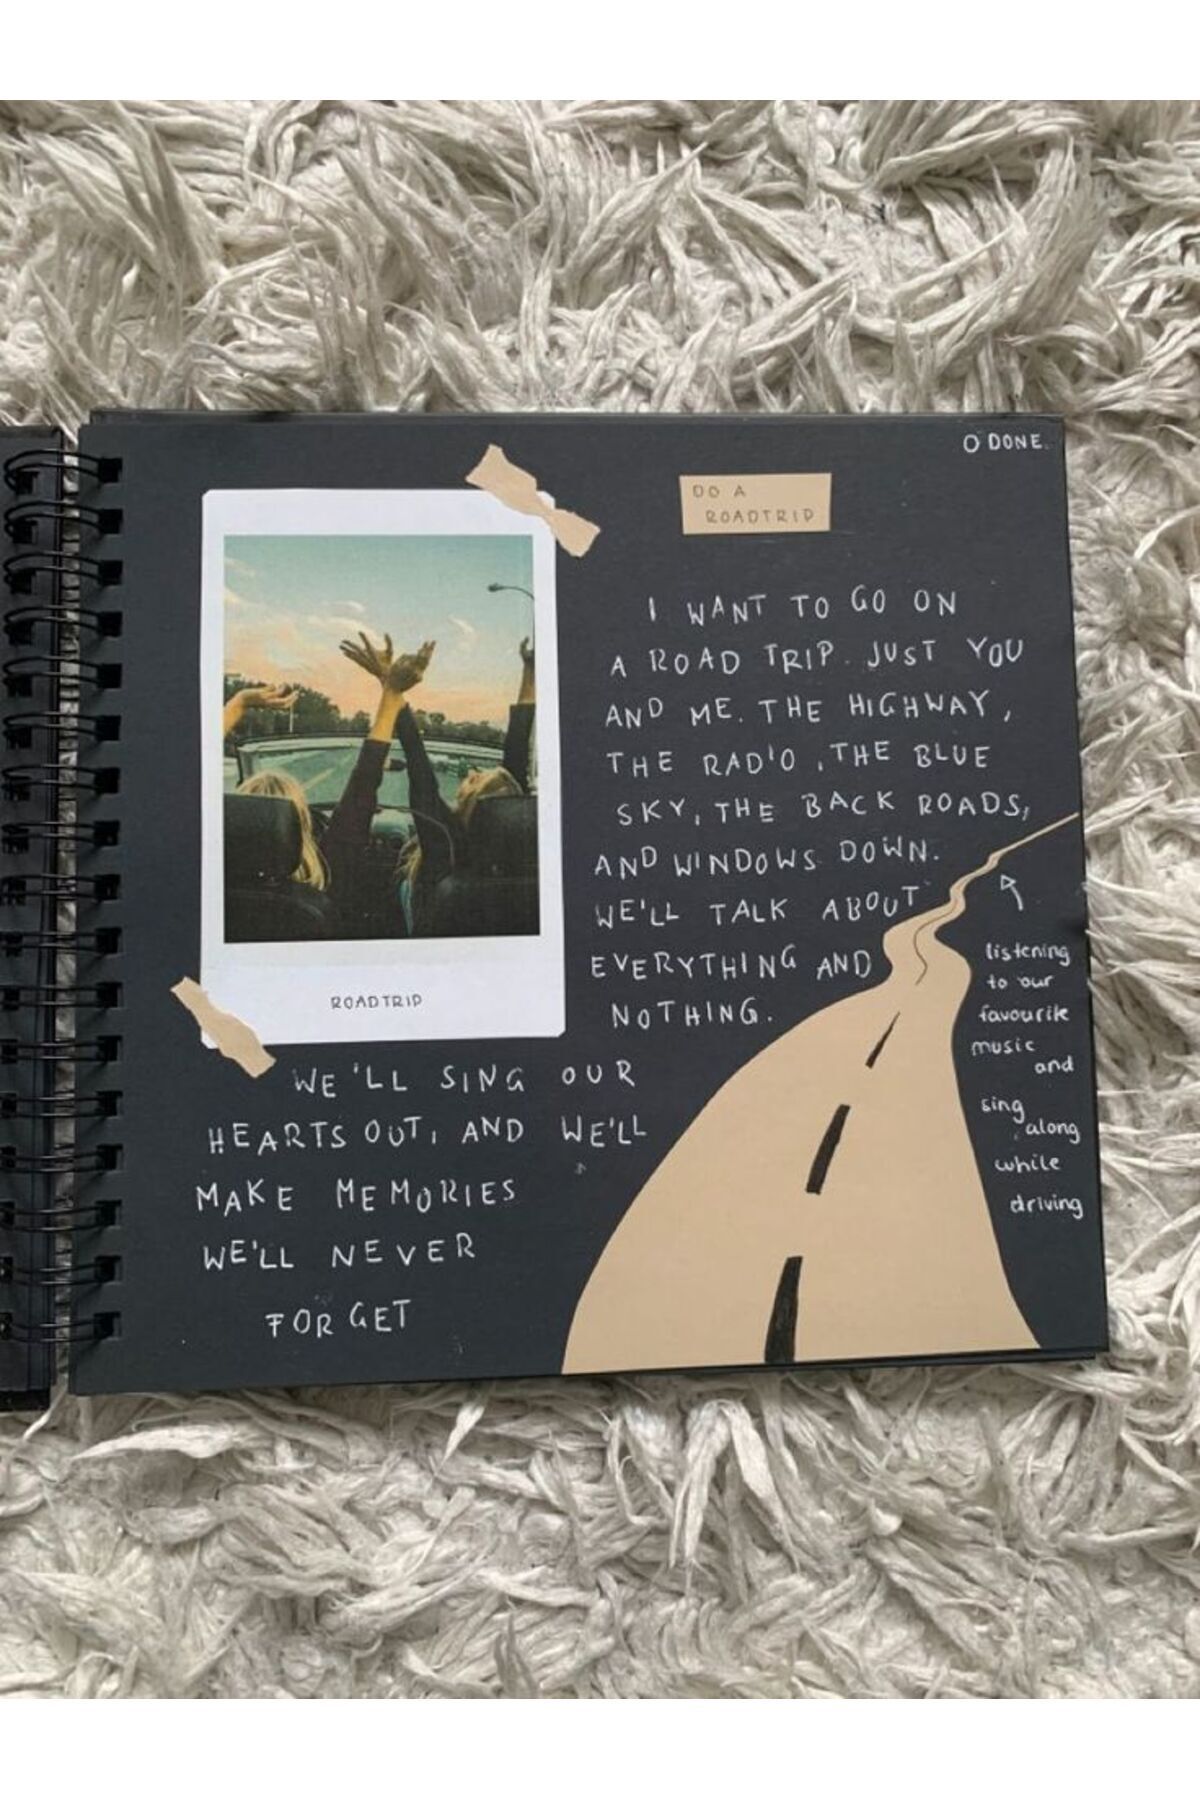 O DONE.
DO A
ROADTRIP
I WANT TO GO ON
A ROAD TRIP. JUST YOU
AND ME. THE HIGHWAY,
THE RADIO, THE BLUE
SKY, THE BACK ROADS,
AND WINDOWS DOWN.
WE'LL TALK ABOUT
EVERYTHING AND
NOTHING.
ROADTRIP
WE'LL SING OUR
HEARTS OUT, AND WE'LL
MAKE MEMORIES
WE'LL NEVER
FORGET
listening
to our
favourite
music
and
sing
along
while
driving